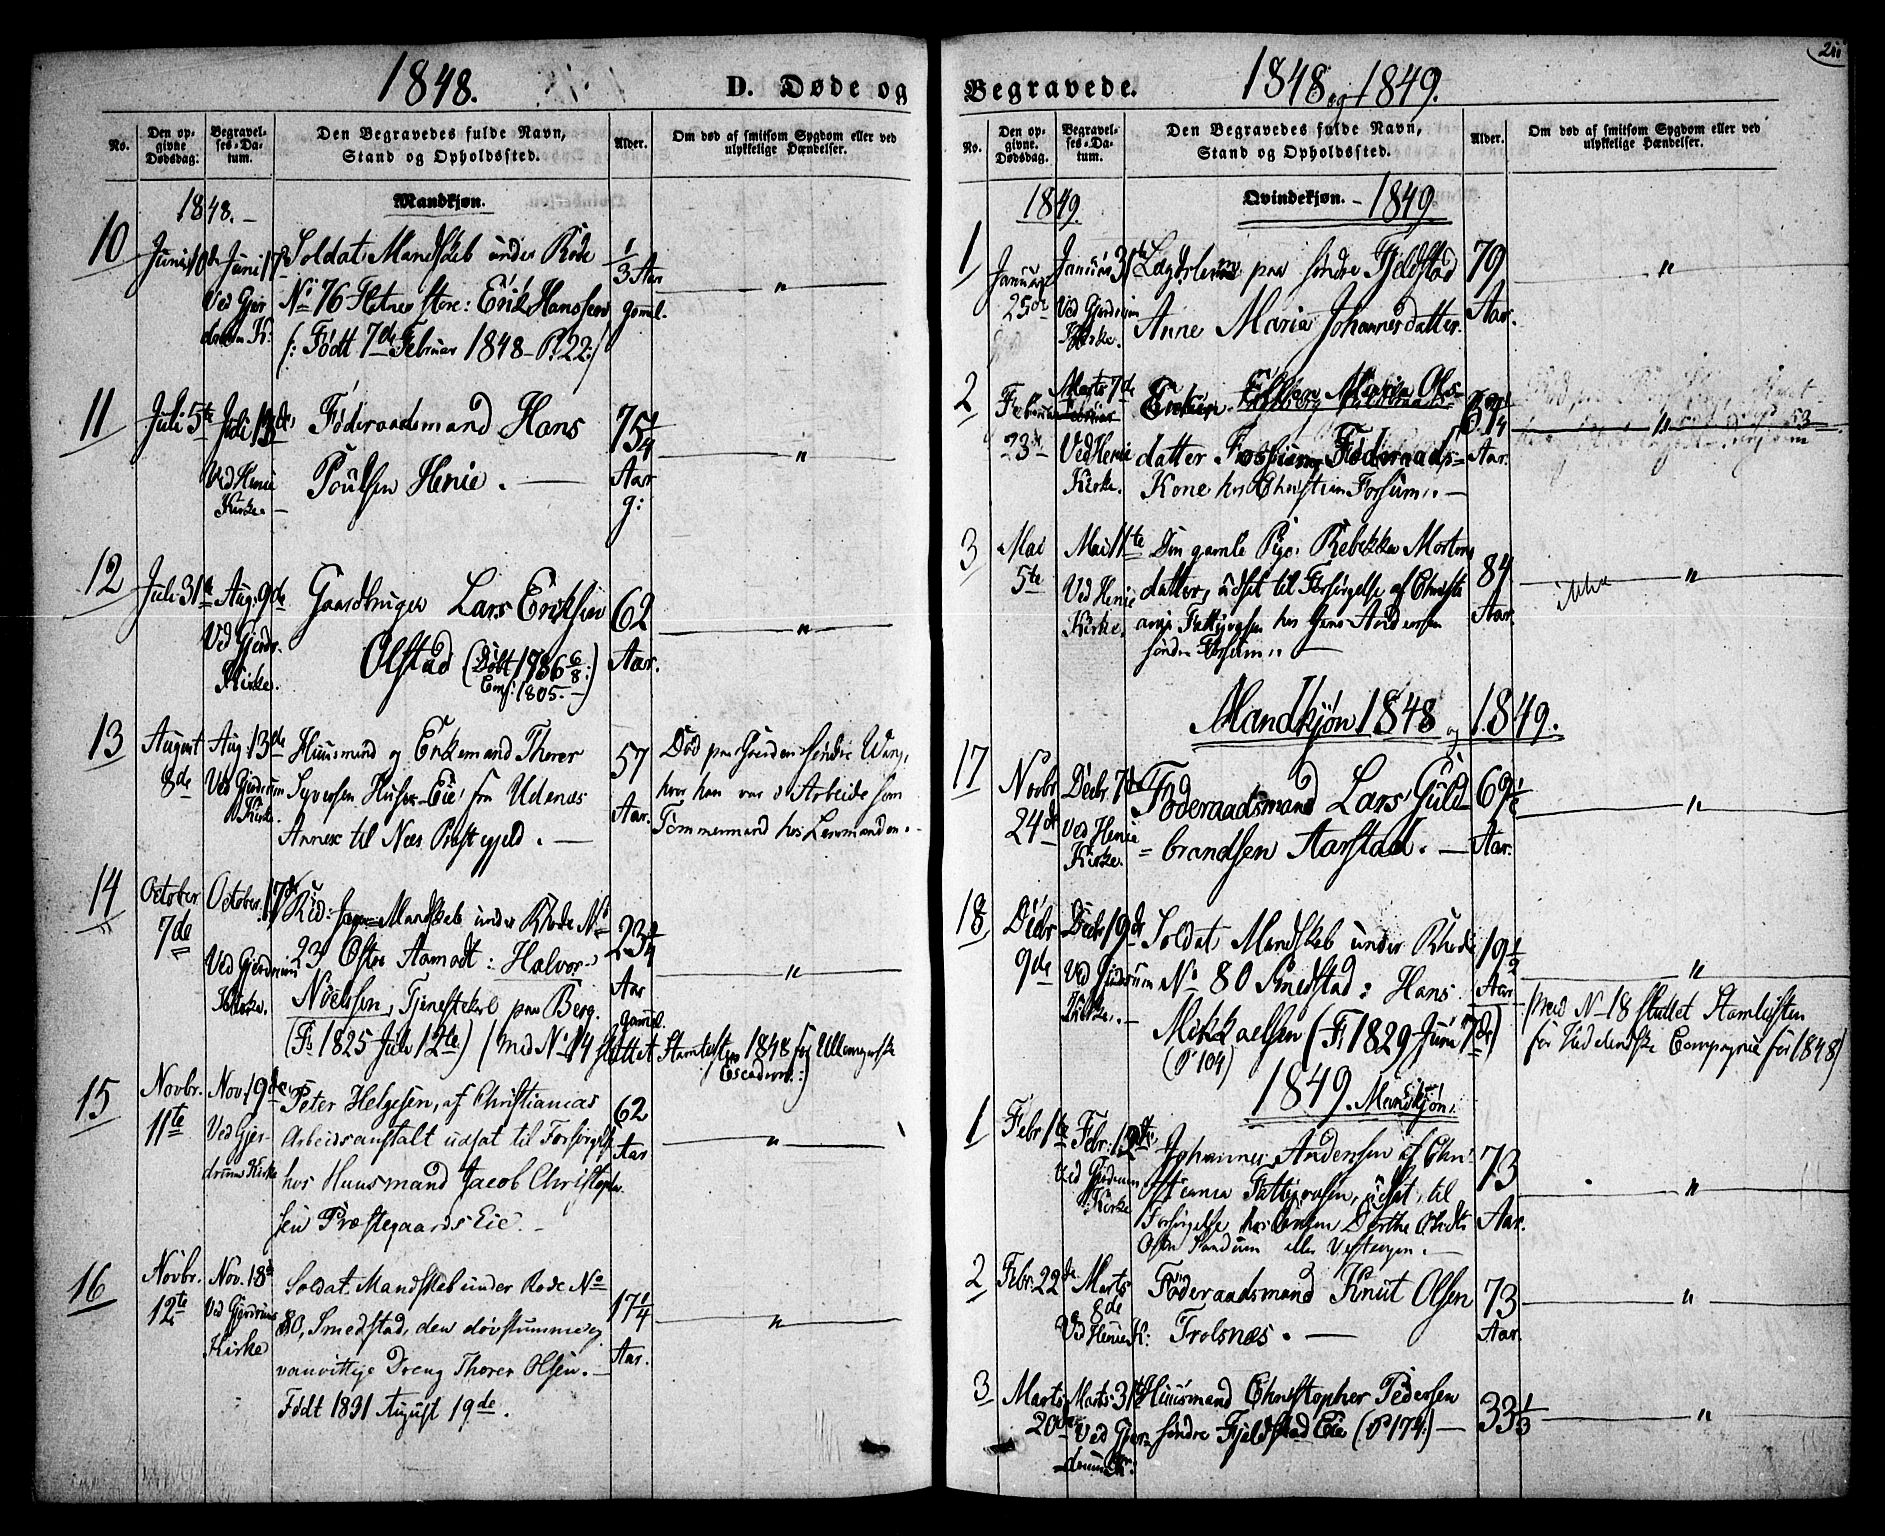 1848.
D. Døde og
No.
Den op-
givne
Dødsdag:
Begravel-
ses-Da-
tum.
Den Begravedes fulde Navn,
Stand og Opholdssted.
Alder.
Om død af smitsom Sygdom eller ved
ulykkelige Hændelser.
1848.
Mandkjøn.
10
Juni 10de
Juni 17de
Ved Gjer
drum K:
Soldat Mandskab under Rode
No 76 Fletnes store: Erik Hanssen
(: Født 7de Februar 1848 - P. 22:)
1/3 Aar
gaml.
"
11
Juli 5te
Juli 13de
Ved Henie
Kirke.
Føderaadsmand Hans
Poulsen Henie.
75 1/4
Aar
g:
"
12
Juli 31te
Aug. 9de
Ved Gjerdr.
Kirke.
Gaardbruger Lars Eriksen
Olstad (Døbt 1786 6/8:)
Conf: 1805.
62
Aar.
"
13
August
8de
Aug: 13de
Ved Gjerdrum
Kirke.
Huusmand og Enkemand Thorer
Syversen Eie fra Udenæs
Annex til Næs Præstegjeld.
57
Aar.
Død paa Gaarden søndre
hvor han var i Arbeide som
Tømmermand hos Lensmanden.
14
October
7de
October 17de
Ved Gjerdrum
Kirke.
Rid: Mandskab under Rode No
23 Østre Aamodt: Halvor
Nielssen, Tjenestekarl paa Berg.
(F. 1825 Juli 12te) (med No 14 sluttet Stamlisten 1848 for
Escadron:)
23 1/4
Aar
gammel.
"
15
Novbr.
11te
Nov: 19de
Ved Gjer-
drum Kirke
Peter Helgesen, af Christianias
Arbeidsanstalt udsat til Forsørgelse
hos Huusmand Jacob Christophe
sen Præstegaards Eie.
62
Aar
"
16
Novbr.
12te
Nov. 18de
Ved Gjerdrums
Kirke
Soldat Mandskab under Rode No
80, Smedstad, den døvstumme og
vanvittige Dreng Thorer Olsen.
Født 1831 August 19de.
17 1/4
Aar.
"
Begravede.
1848 og 1849.
No.
Den op-
givne.
Dødsdag.
Begravel-
ses-Da-
tum.
Den Begravedes fulde Navn,
Stand og Opholdssted.
Alder.
Om død af smitsom Sygdom eller ved
ulykkelige Hændelser.
1849.
Qvindekjøn. - 1849
1
Januar
25de
Januar 31te
Ved Gjerdrum
Kirke.
paa søndre Fjeldstad
Anne Maria Johannesdatter.
79
Aar.
"
2
23de
Marts 7de
Ved Henie
Kirke.
Maria Ols-
datter Fossum Føderaads-
Kone hos Christian Forsum.
Aar.
"
3
Mai
5te
Mai 11te
Ved Henie
Kirke.
Den gamle Pige Rebekka Mortens
datter, udsat til Forsørgelse af Christi
anias Fattigvæsen hos Hans Andersen
søndre Forsum.
84
Aar.
"
Mandkjøn 1848 og 1849.
17
Novbr
24de
Decbr. 7de
Ved Henie
Kirke.
Føderaadsmand Lars Guld-
brandsen Aarstad.
69 1/2
Aar.
"
18
Decbr
9de
Decbr 19de
Ved Gjerdrum
Kirke.
Soldat Mandskab under Rhode
No 80 Smedstad: Hans
Mikkaelsen (F. 1829 Juni 7de)
(P 104)
19 1/2
Aar
"
(med No 18 sluttet Stamlisten
for Compagnie for 1848)
1849. Mandkjøn.
1
Febr 1te
Febr: 12te
Ved Gjerdrum
Kirke
Johannes Andersen af Chri
stiania Fattigvæsen, udsat til
Forsørgelse hos Enken Dorthe
73
Aar.
"
2
Febr. 22de
Marts
8de
Ved Henie K:
Føderaadsmand Knut Olsen
Trolsnæs.
73
Aar.
"
3
Marts
20de
Marts 31te
Ved Gjer-
drum K:
Huusmand Christopher Pedersen
søndre Fjeldstad Eie (P 174:)
33 1/3
"